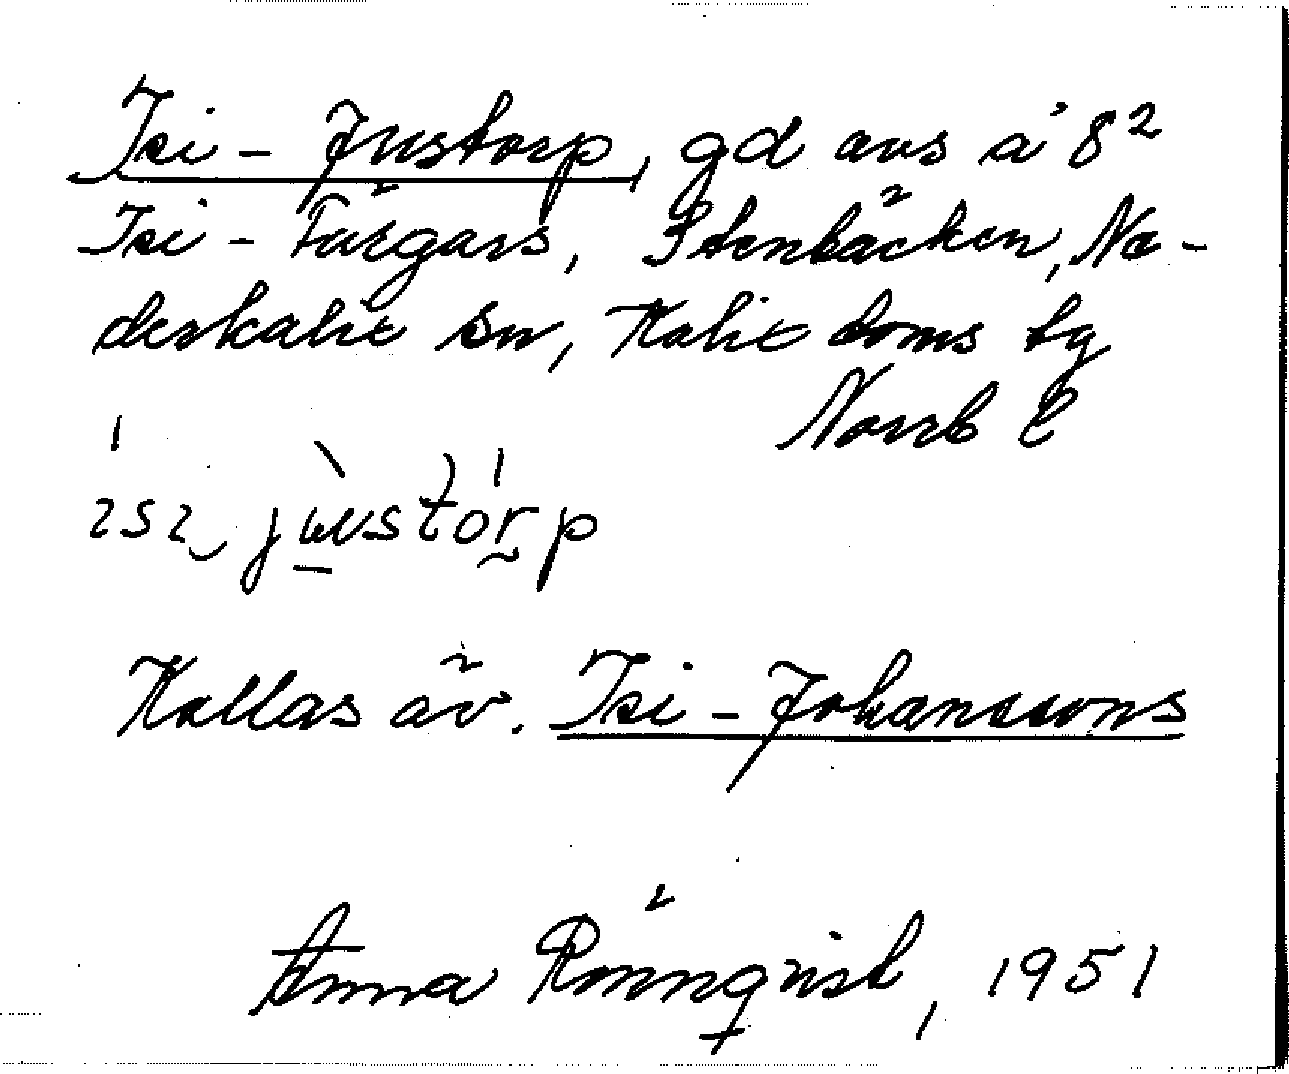 Isi-Justorp, gd avs å 8²
Isi-Färgars, Stenbäcken, Ne-
derkalix sn, Kalix doms tg
Norrb l
ɪsɪ jʉstorp
Kallas äv. Isi-Johanssons
Anna Rönnqvist, 1951